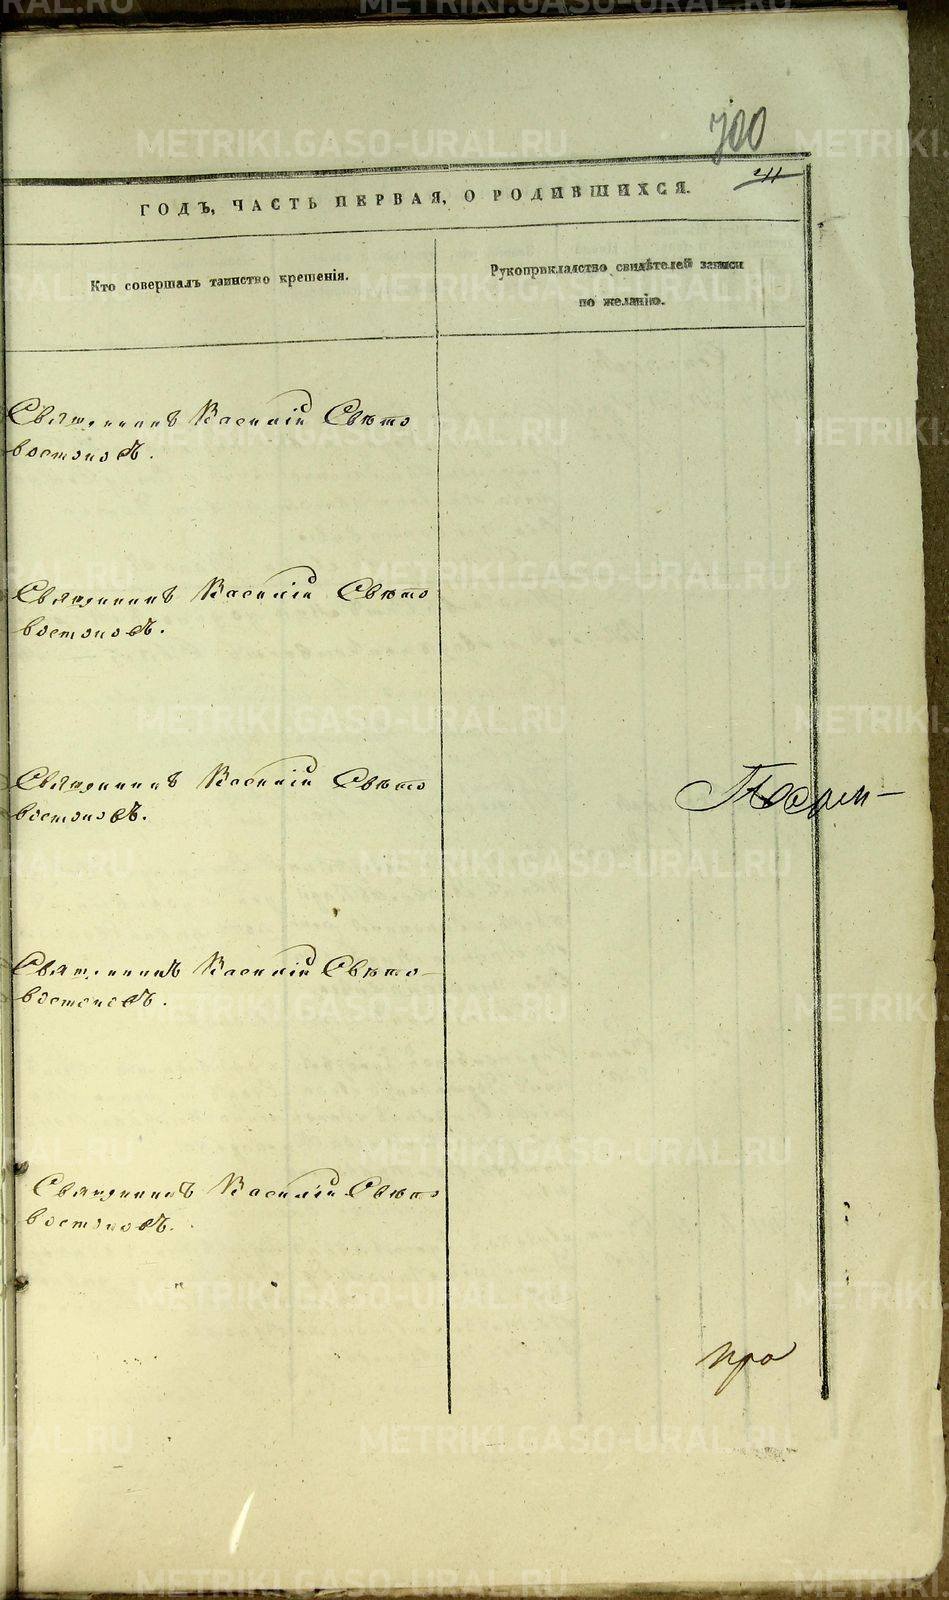 700
ГОДЪ, ЧАСТЬ ПЕРВАЯ, О РОДИВШИХСЯ.
Кто совершалъ таинство крещенія.
Рукоприкладство свидѣтелей записи
по желанію.
Священникъ Василій Свѣто
востоковъ.
Священникъ Василій Свѣто
востоковъ.
Священникъ Василій Свѣто
востоковъ.
Священникъ Василій Свѣто-
востоковъ.
Священникъ Василій Свѣто
востоковъ.
про
METRIKI.GASO-URAL.RU